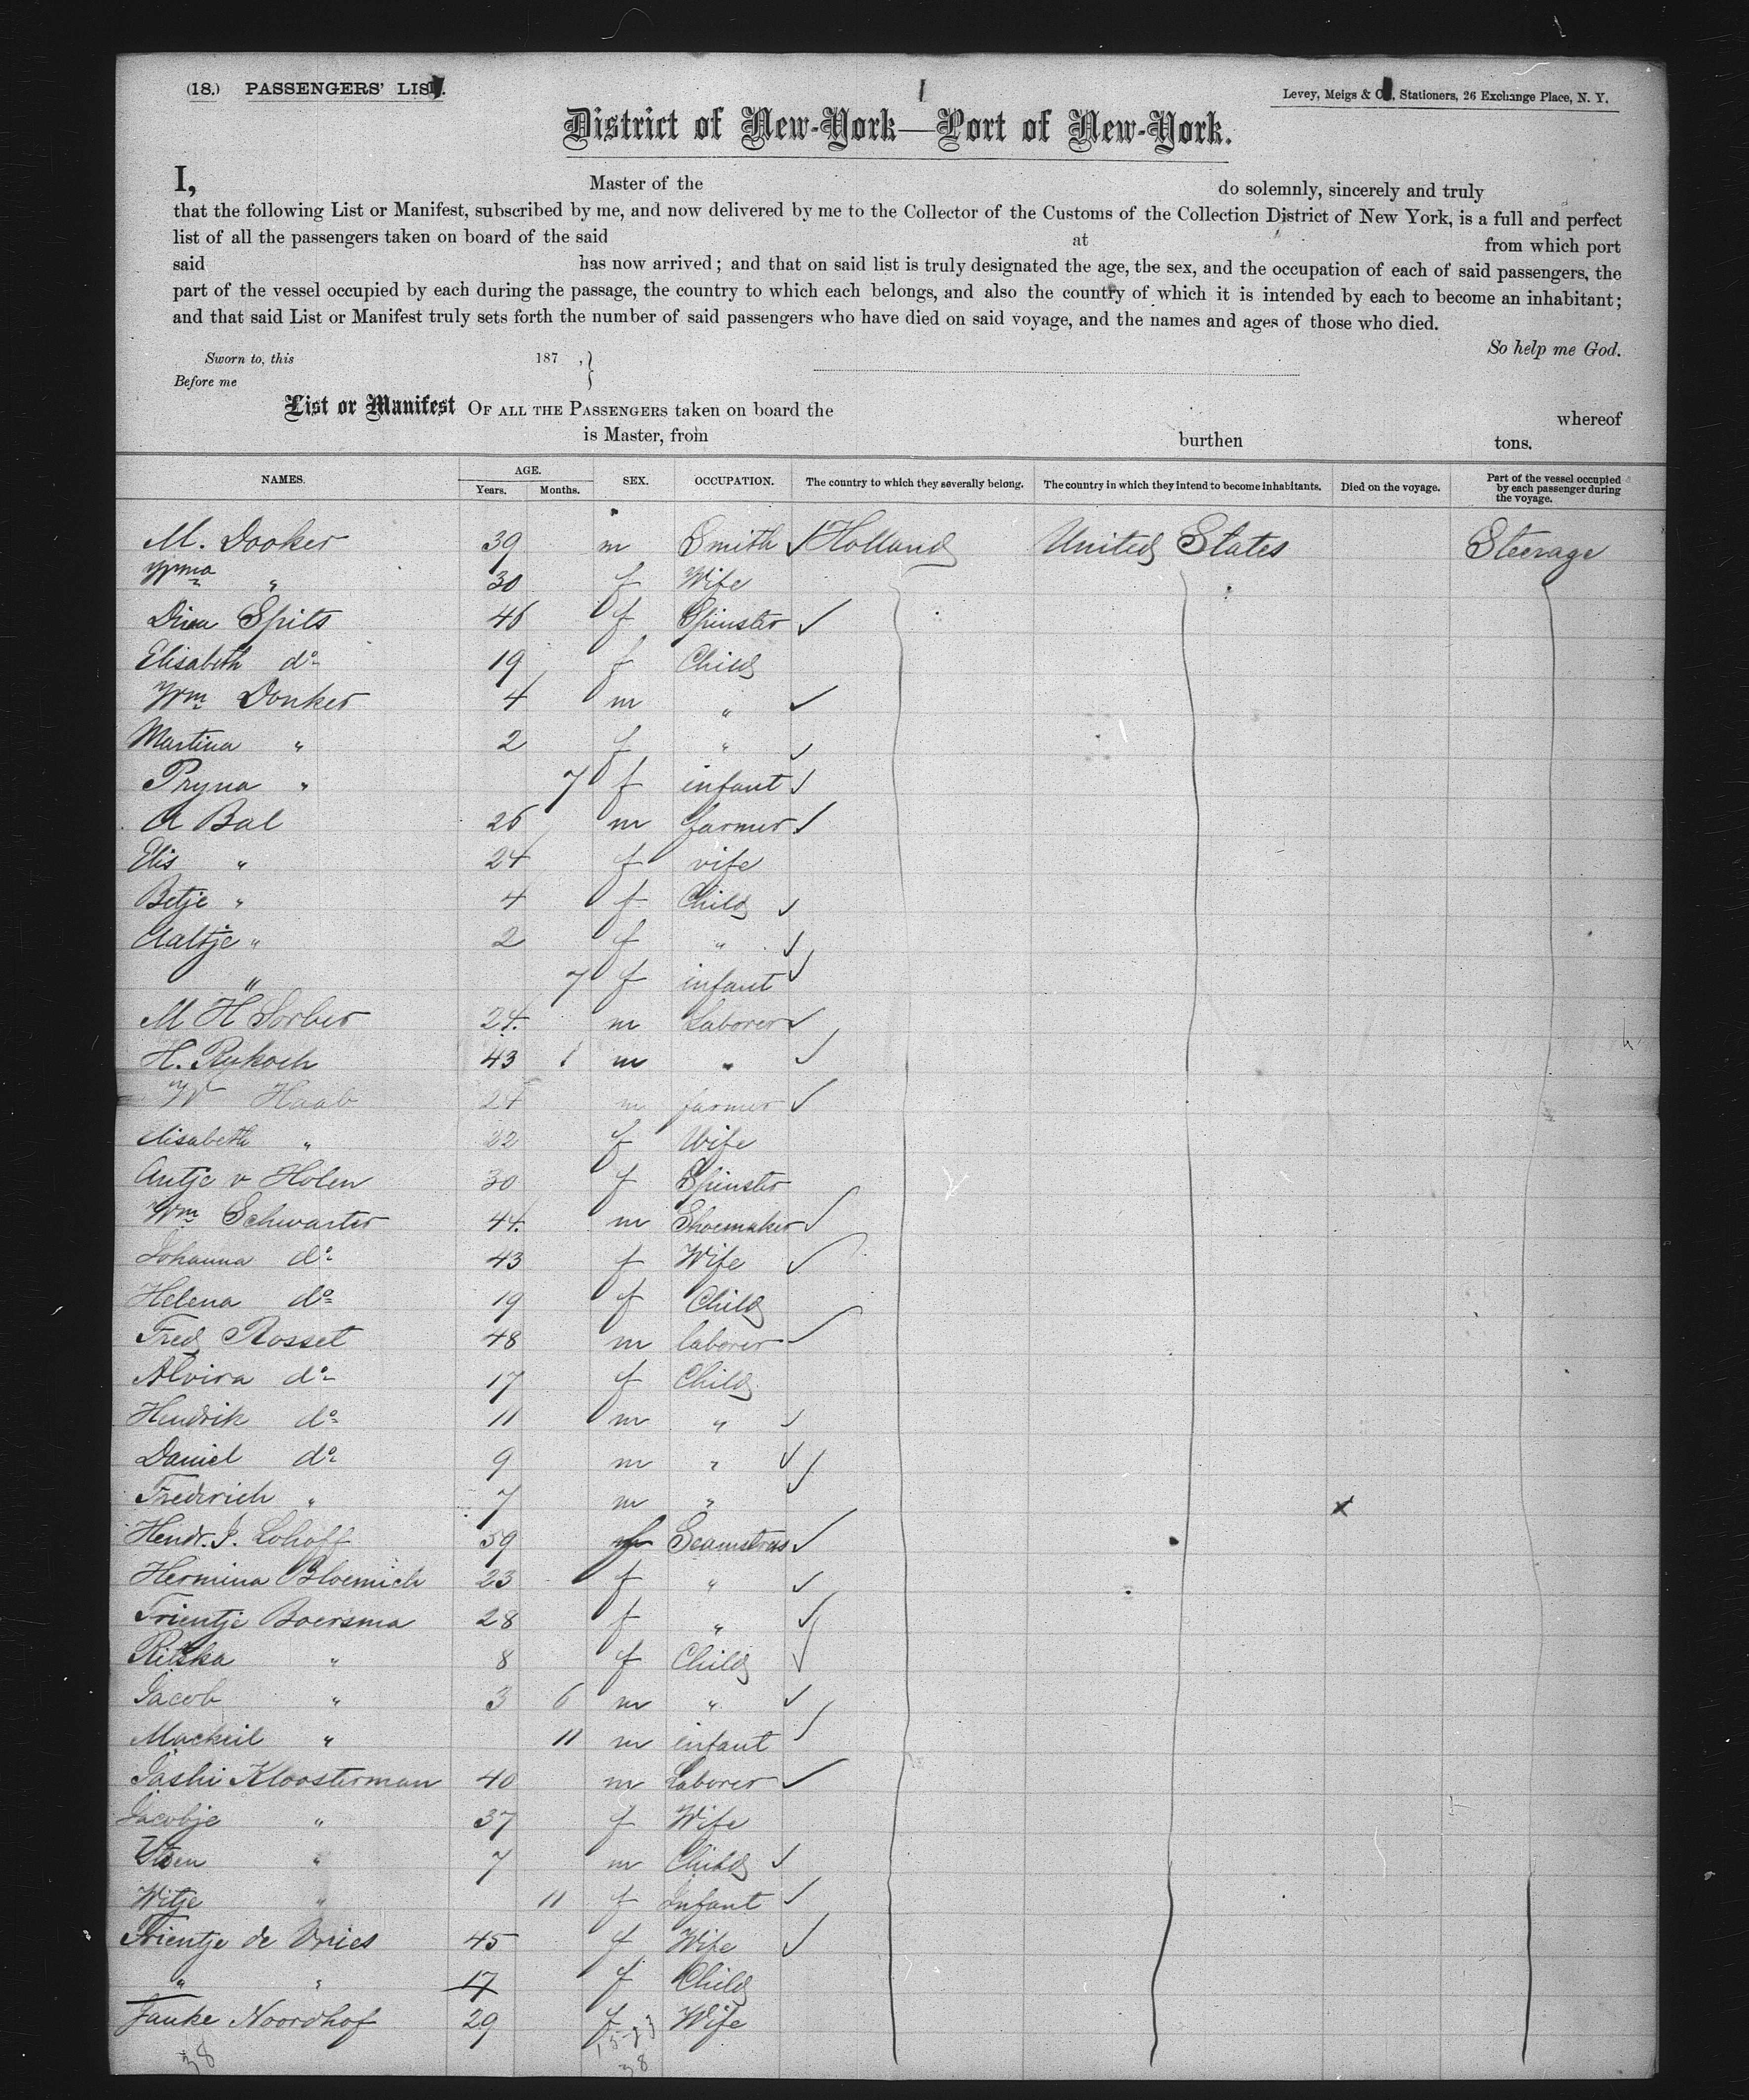 (18.) PASSENGERS' LIST. 1 Levey, Meigs & Co., Stationers, 26 Exchange Place, N. Y.
District of New-York—Port of New-York.
I, Master of the do solemnly, sincerely and truly
that the following List or Manifest, subscribed by me, and now delivered by me to the Collector of the Customs of the Collection District of New York, is a full and perfect
list of all the passengers taken on board of the said at from which port
said has now arrived; and that on said list is truly designated the age, the sex, and the occupation of each of said passengers, the
part of the vessel occupied by each during the passage, the country to which each belongs, and also the country of which it is intended by each to become an inhabitant;
and that said List or Manifest truly sets forth the number of said passengers who have died on said voyage, and the names and ages of those who died.
So help me God.
Sworn to, this 187 ,}
Before me
List or Manifest OF ALL THE PASSENGERS taken on board the whereof
is Master, from burthen tons.
NAMES. AGE. Years. Months. SEX. OCCUPATION. The country to which they severally belong. The country in which they intend to become inhabitants. Died on the voyage. Part of the vessel occupied by each passenger during the voyage.
M. Dooker 39 m Smith ✓ Holland United States Steerage
" 30 f Wife
Dina Spits 46 f Spinster ✓
Elisabeth do 19 f Child
Wm Donker 4 m " ✓
Martina " 2 f " ✓
Pryna " 7 f infant ✓
A Bal 26 m farmer ✓
Elis " 24 f wife
Betje " 4 f Child ✓
Aaltje " 2 f " ✓
" 7 f infant ✓
M H Sorber 24 m Laborer ✓
H. Rykoch 43 1 m " ✓
W Haab 24 m farmer ✓
Elisabeth " 22 f Wife
Antje v Holen 30 f Spinster
Wm Schwarter 44 m Shoemaker ✓
Johanna do 43 f Wife ✓
Helena do 19 f Child
Fred Rosset 48 m laborer ✓
Alvira do 17 f Child
Hendrik do 11 m " ✓
Daniel do 9 m " ✓
Frederich " 7 m " ✓ x
Hendr. J. Lohoff 59 f Seamstress ✓
Hermina Bloemich 23 f " ✓
Trientje Boersma 28 f " ✓
Ritska " 8 f Child ✓
Jacob " 3 6 m " ✓
Mackiel " 11 m infant ✓
Jashi Kloosterman 40 m Laborer ✓
Jacobje " 37 f Wife
" 7 m Child ✓
Witje " 11 f Infant ✓
Trientje de Vries 45 f Wife ✓
" " 17 f Child
Janke Noordhof 29 f Wife
38 15-23
38